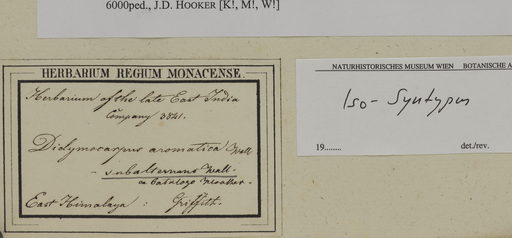 6000ped., J.D. HOOKER [K!, M!, W!]
HERBARIUM REGIUM MONACENSE.
Herbarium of the late East India
Company 3841.
Didymocarpus aromatica Wall
- subalternans Wall.
Catalogo
East Himalaya : Griffith.
NATURHISTORISCHES MUSEUM WIEN BOTANISCHE A
Iso-Syntypus
19........ det./rev.